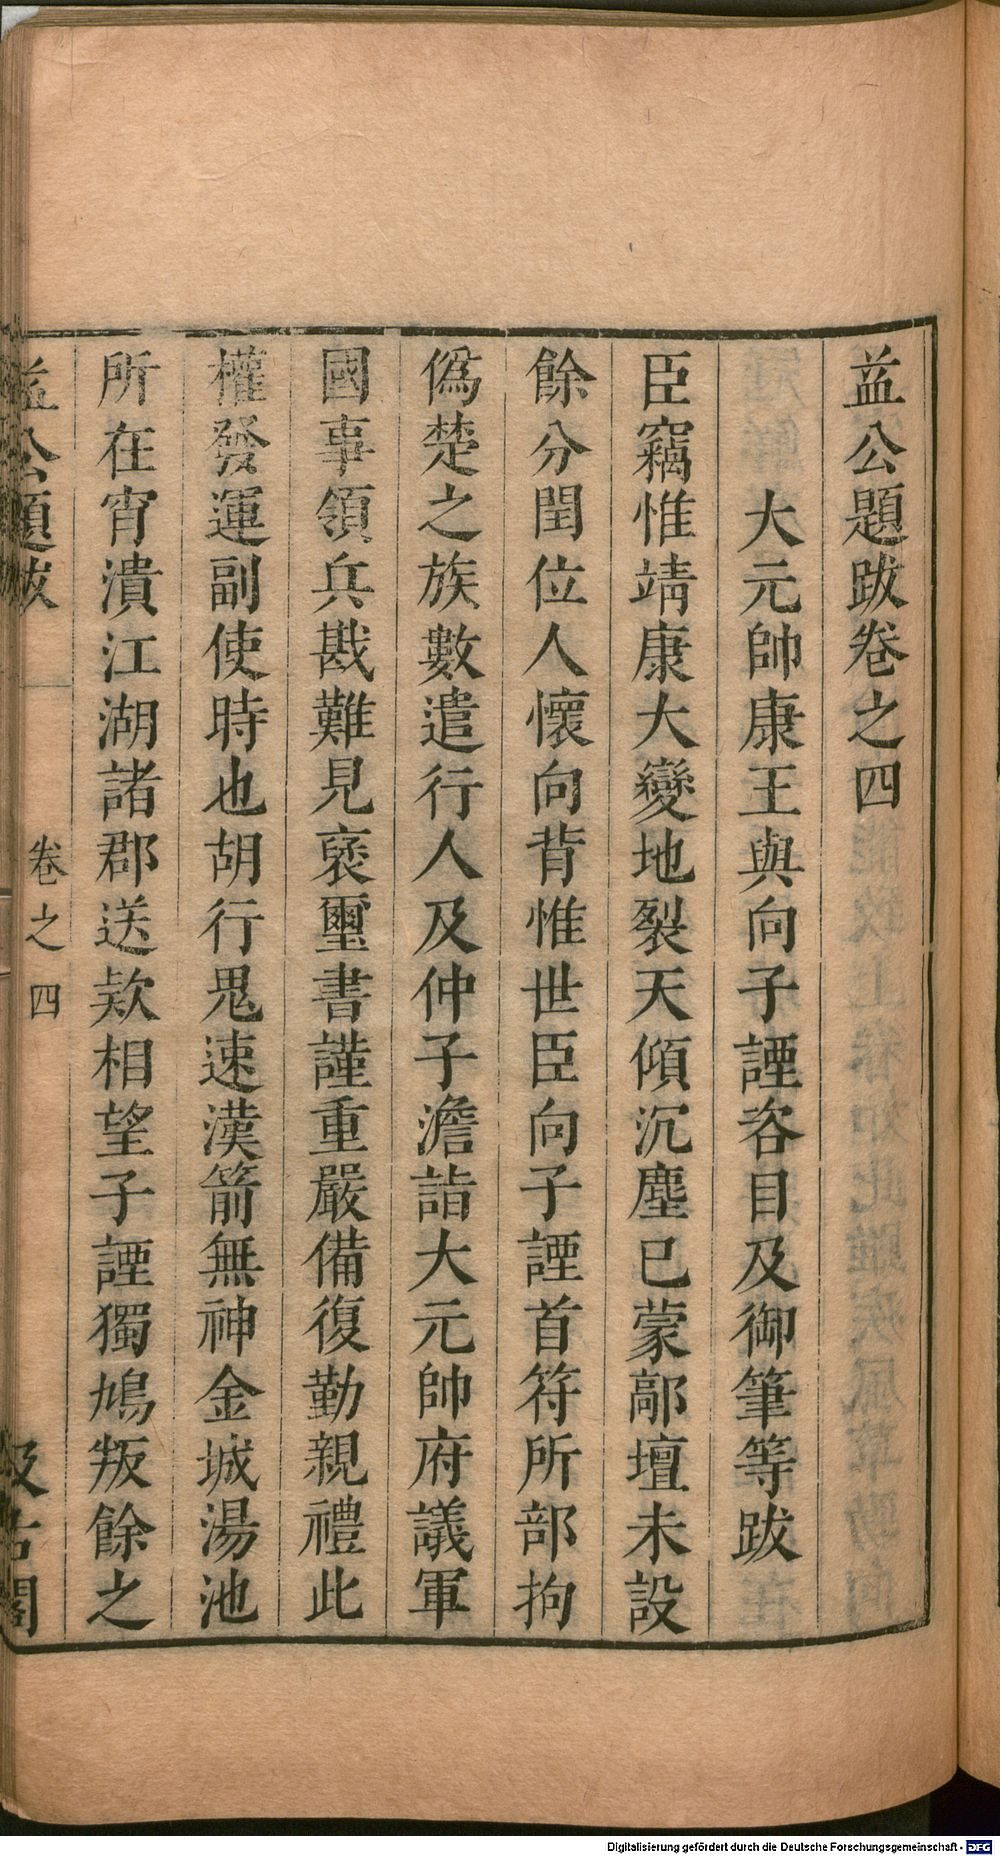 益公題跋卷之四
大元帥康王與向子諲咨目及御筆等跋
臣竊惟靖康大變地裂天傾沉塵已蒙鄗壇未設
餘分閏位人懷向背惟世臣向子諲首符所部拘
僞楚之族數遣行人及仲子澹詣大元帥府議軍
國事領兵戡難見褒璽書謹重嚴備復勤親禮此
權發運副使時也胡行鬼速漢箭無神金城湯池
所在宵潰江湖諸郡送欵相望子諲獨鳩叛餘之
益公題跋
卷之四
汲古閣
Digitalisierung gefördert durch die Deutsche Forschungsgemeinschaft - DFG